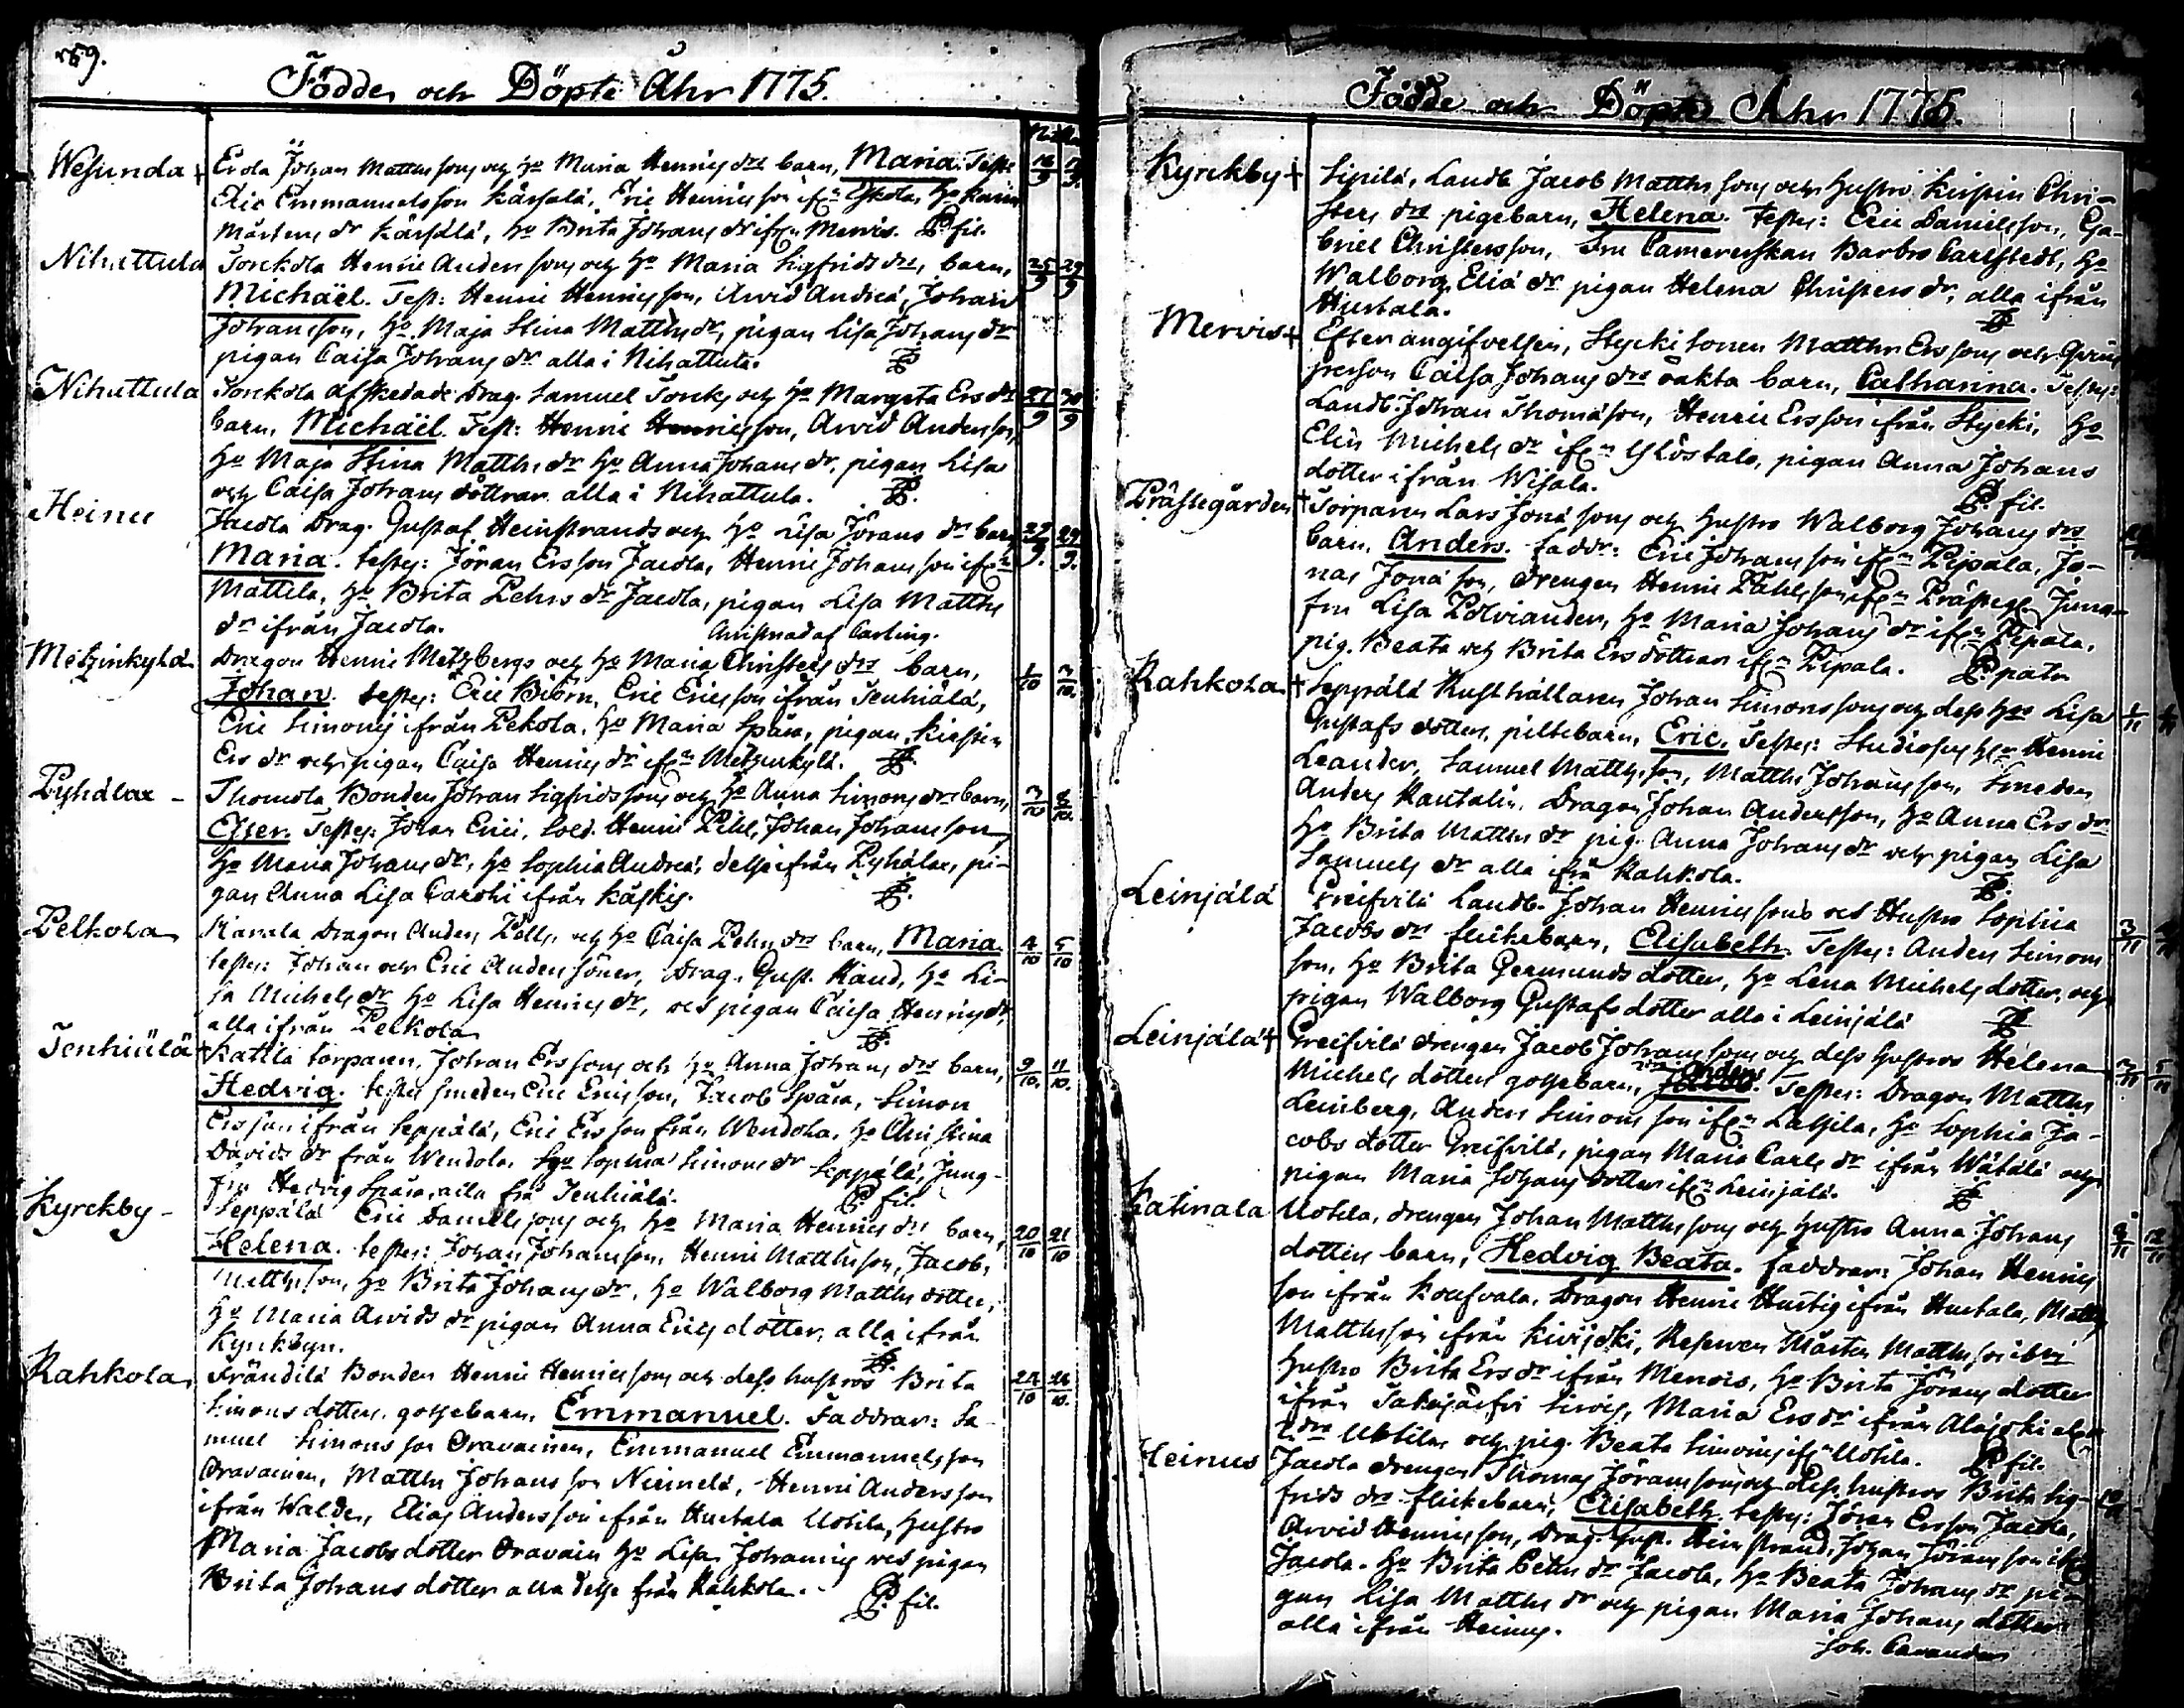 Födde och Döpte Åhr 1775.
Wesunda + Erola Johan Matthssons och ho Maria Henrics drs barn, Maria. Test:
Eric Emmanuelsson Kärsälä, Eric Henricsson ifrn Eskola, ho Karin
Mårtens dr Kärsälä, ho Brita Johans dr ifrn Mervis. P. fil.
Nihattula Torckola Henric Anderssons och ho Maria Sigfrids drs, barn, 25/9 29/9
Michaël. Test: Henric Henricsson, Arvid Andreæ, Johan
Johansson, ho Maja Stina Matths dr, pigan Lisa Johans dr
pigan Caisa Johans dr alla i Nihattula. P.
Nihattula Torckola afskedade Drag. Samuel Torcks och ho Margeta Ers drs 27/9 30/9
barn, Michaël. Test: Henric Henricsson, Arvid Andersson,
ho Maja Stina Matths dr ho Anna Johans dr, pigan Lisa
och Caisa Johans döttrar alla i Nihattula. P.
Heinu Jacola Drag. Gustaf Heinstrands och ho Lisa Jörans drs barn 29/9.
Maria. testes: Jöran Ersson Jacola, Henric Johansson ifrn
Mattila, ho Brita Pehrs dr Jacola, pigan Lisa Matths
dr ifrån Jacola. Christnad af Carling.
Metzinkylä Dragon Henric Metzbergs och ho Maria Christers drs barn, 1/10 3/10.
Johan. testes: Eric Biörn, Eric Ericsson ifrån Jenhiälä,
Eric Simonis ifrån Pekola, ho Maria Spåra, pigan Kirstin
Ers dr och pigan Caisa Henrics dr ifrn Metzinkylä. P.
Pyhälax - Thomola Bonden Johan Sigfridssons och ho Anna Simons drs barn, 3/10 8/10.
Ester. Testes: Johan Erici, Sold. Henric Pihl, Johan Johansson,
ho Maria Johans dr, ho Sophia Andreæ, desse ifrån Pyhälax, pi-
gan Anna Lisa Caroli ifrån Käskis. P.
Pelkola Kanala Dragon Anders Pells och ho Caisa Pehrs drs barn, Maria. 4/10 5/10
testes: Johan och Eric Anders söner, Drag. Gust. Rand, ho Li-
sa Michels dr ho Lisa Henrics dr, och pigan Caisa Henrics dr,
alla ifrån Pelkola P.
Jenhiälä + Kattila torparen, Johan Erssons och ho Anna Johans drs barn, 9/10. 11/10.
Hedvig. testes smeden Eric Ericsson, Jacob Spåra, Simon
Ersson ifrån Seppälä, Eric Ersson från Wendola, ho Christina
Davids dr från Wendola, ho Sophia Simons dr Seppälä, Jung-
fru Hedvig Spåra, alla frå Jenhiälä. P. fil.
Kyrckby - Seppälä Eric Danielssons och ho Maria Henrics drs barn, 20/10 21/10
Helena. testes: Johan Johansson, Henric Matthsson, Jacob,
Matthsson, ho Brita Johans dr, ho Walborg Matths dotter,
ho Maria Arvids dr pigan Anna Erics dotter, alla ifrån
Kyrkbyn. P.
Rahkola, Frändilä Bonden Henric Henricssons och dess hustros Brita
Simons dotters gossebarn, Emmanuel. Faddrar: Sa-
muel Simonsson Oravainen, Emmanuel Emmanuelsson
Oravainen, Matths Johansson Niemelä, Henric Andersson
ifrån Walde, Elias Andersson ifrån Hurtala Uotila, hustro
Maria Jacobsdotter Oravain ho Lisa Johannis och pigan
Brita Johansdotter alla desse från Rahkola. P. fil.
Födde och Döpte Åhr 1775.
Kyrckby + Sipilä, Landb. Jacob Matthssons och hustro Kirstin Chri-
sters drs pigebarn, Helena. Testes: Eric Danielsson, Ga-
briel Christersson, Fru Camererskan Barbro Carlstedt, ho
Walborg Eliæ dr pigan Helena Christers dr, alla ifrån
Hurtala. P.
Mervis + Efter angifvelsen, Stycki sonen Matths Erssons och Qvins
person Caisa Johans drs oäkta barn, Catharina. Testes:
Landb. Johan Thomæson, Henric Ersson ifrån Stycki, ho
Elin Michels dr ifrn Ylöstalo, pigan Anna Johans
dotter ifrån Wisala. P. fil.
Prästegården + Torparen Lars Jonæ sons och hustro Walborg Johans drs
barn, Anders. faddr: Eric Johansson ifrn Pispala, Jo-
nas Jonæ son, drengen Henric Påhlsson ifrn Prästeg. Jung-
fru Lisa Polviander, ho Maria Johans dr ifrn Pispala,
pig. Beata och Brita Ers döttrar ifrn Pispala. P. pater
Rahkola + Seppälä Rusthållaren Johan Simonssons och dess hos Lisa 1/11
Gustafs dotters, piltebarn, Eric. Testes: Studiosus hr Henric
Leander, Samuel Matthsson, Matths Johansson, Smeden
Anders Rautalin, Dragon Johan Andersson, ho Anna Ers dr
ho Brita Matths dr pig. Anna Johans dr och pigan Lisa
Samuels dr alla ifrå Rahkola. P.
Leinjälä Greifvilä Landb. Johan Henricssons och Hustro Sophia
Jacobs drs flickebarn, Elisabeth. Testes: Anders Simons 3/11
son, ho Brita Germunds dotter, ho Lena Michels dotter, och
pigan Walborg Gustafs dotter alla i Leinjälä P.
Leinjälä + Greifvilä drengen Jacob Johanssons och dess hustros Helena
Michels dotters gossebarn, Anders. Testes: Dragon Matths 5/11
Leinberg, Anders Simonsson ifrn Lassila, ho Sophia Ja-
cobs dotter Greifvilä, pigan Maria Carls dr ifrån Wätälä och
pigan Maria Johans dotter ifrn Leinjälä. P.
Katinala Uotila, drengen Johan Matthssons och hustro Anna Johans
dotters barn, Hedvig Beata. faddrar: Johan Henrics
son ifrån Konsvala, Dragon Henric Hurtig ifrån Hurtala, Matts
Matthsson ifrån Kivijoki, Reserven Mårten Matthsson
hustro Brita Ers dr ifrån Mervis, ho Brita Jörans dotter
ifrån Maria Ers dr ifrån Alajoki
Uotila och pig. Beata Simonis ifrn Uotila. P. fil.
Heinus Jacola drengen Thomas Jöranssons och dess hustros Brita Sig-
frids drs flickebarn, Elisabeth. testes: Jöran Ersson Jacola,
Arvid Henricsson, Drag. Gust. Heinstrand, Johan Jöransson
Jacola. ho Brita Pettrs dr Jacola, ho Beata Johans dr pi-
gan Lisa Matths dr och pigan Maria Johans dotter
alla ifrån Heinus.
Joh. Cavander